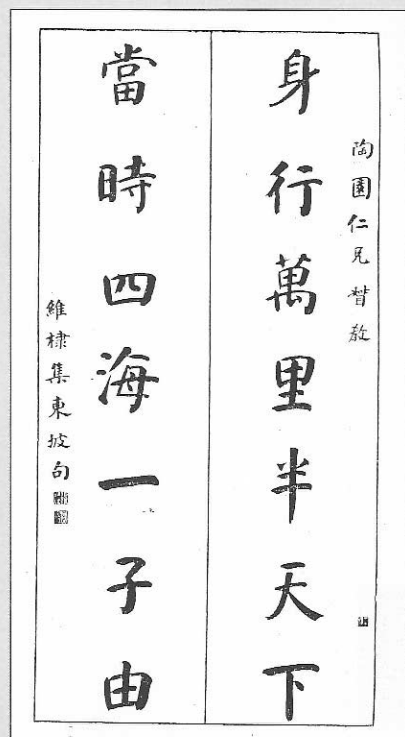 陶園仁兄教
身行萬里半天下
當時四海一子由
維棣集東坡句